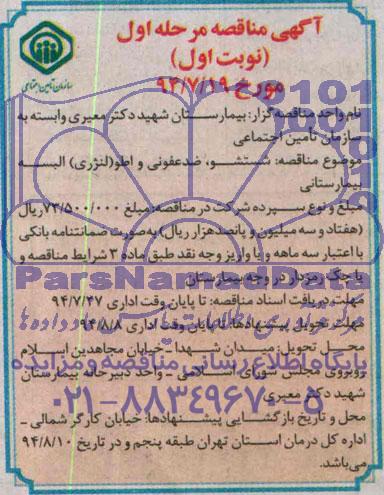 آگهی مناقصه مرحله اول
(نوبت اول)
مورخ ۹۴/۷/۱۹
سازمان تأمین اجتماعی
نام واحد مناقصه گزار: بیمارستان شهید دکتر معیری وابسته به
سازمان تأمین اجتماعی
موضوع مناقصه: شستشو، ضدعفونی و اطو(لنژری) البسه
بیمارستانی
مبلغ و نوع سپرده شرکت در مناقصه: مبلغ ۷۳/۵۰۰/۰۰۰ ریال
(هفتاد و سه میلیون و پانصدهزار ریال) به‌صورت ضمانتنامه بانکی
با اعتبار سه ماهه و یا واریز وجه نقد طبق ماده ۳ شرایط مناقصه و
یا چک رمزدار در وجه بیمارستان
ParsNamadData
مهلت دریافت اسناد مناقصه: تا پایان وقت اداری ۹۴/۷/۲۷
مهلت تحویل پیشنهادها: تا پایان وقت اداری ۹۴/۸/۸
محل تحویل: میدان شهدا - خیابان مجاهدین اسلام
روبروی مجلس شورای اسلامی - واحد دبیرخانه بیمارستان
پایگاه اطلاع رسانی مناقصه و مزایده
شهید دکتر معیری
۰۲۱-۸۸۳۴۹۶۷۰-۵
محل و تاریخ بازگشایی پیشنهادها: خیابان کارگر شمالی -
اداره کل درمان استان تهران طبقه پنجم و در تاریخ ۹۴/۸/۱۰
می‌باشد.